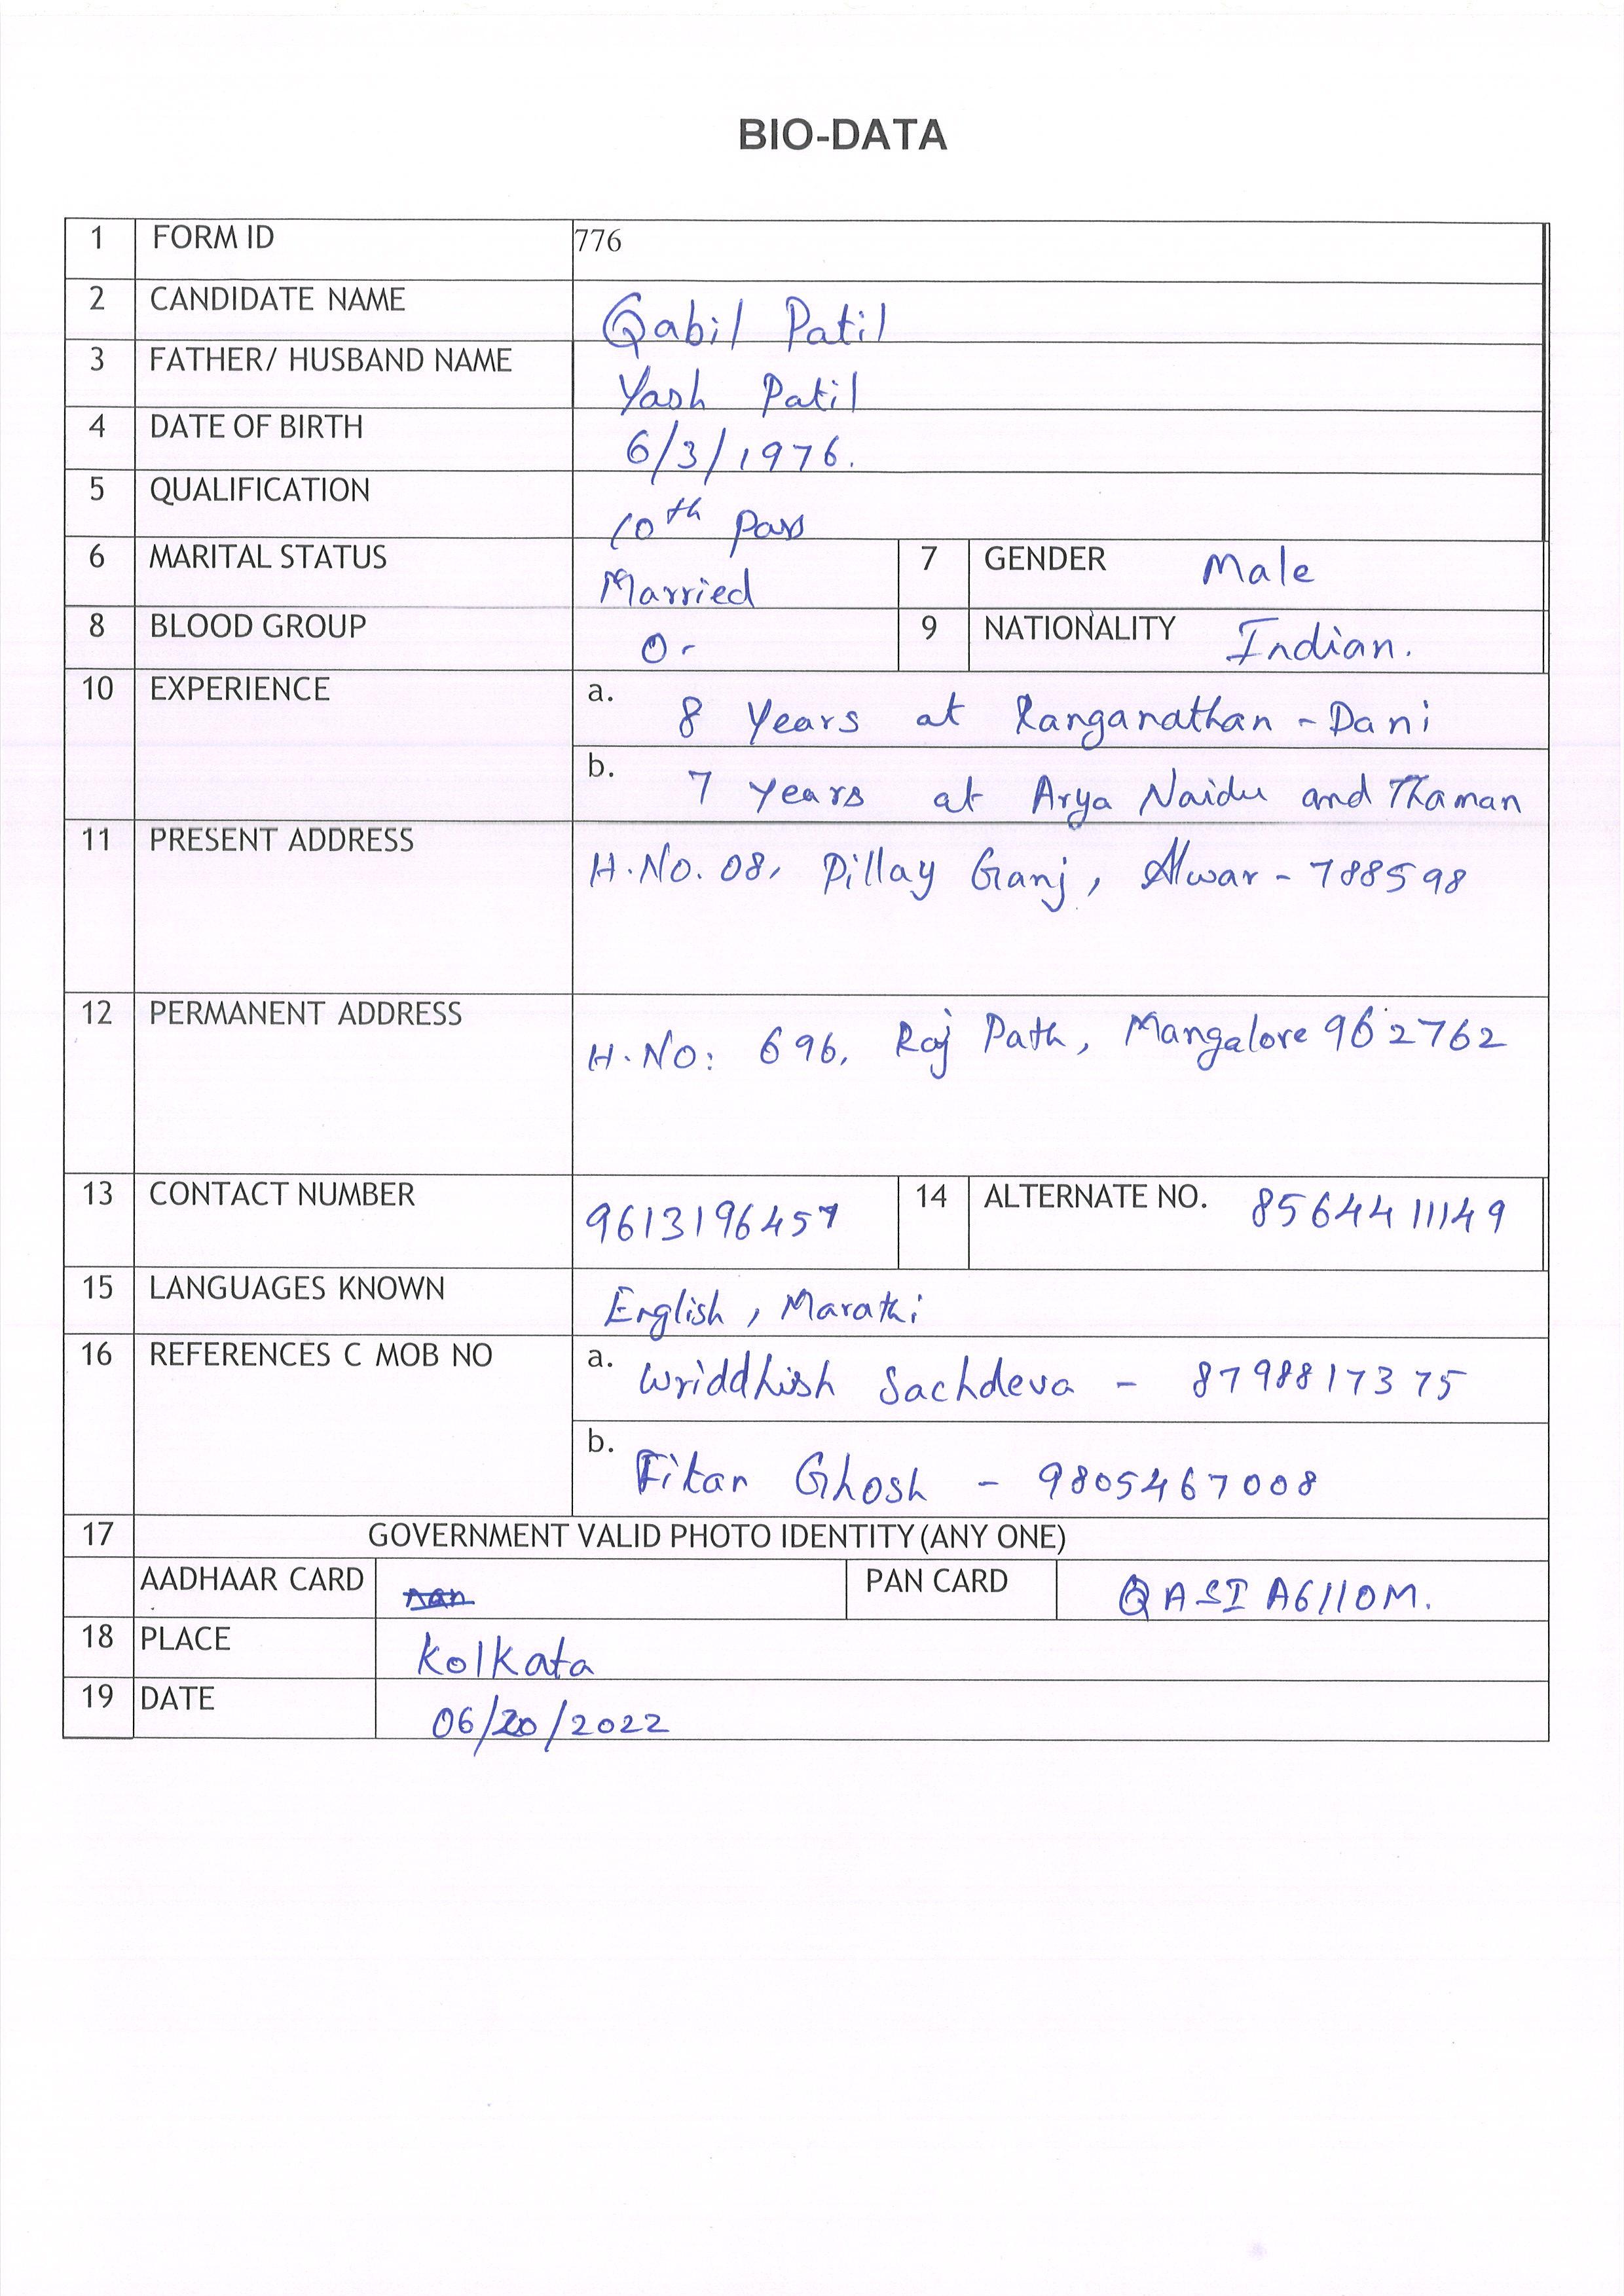 BIO-DATA
1 FORM ID 776
2 CANDIDATE NAME Qabil Patil
3 FATHER/ HUSBAND NAME Yash Patil
4 DATE OF BIRTH 6/3/1976.
5 QUALIFICATION 10th pass
6 MARITAL STATUS Married 7 GENDER Male
8 BLOOD GROUP O- 9 NATIONALITY Indian.
10 EXPERIENCE a. 8 Years at Ranganathan - Dani
b. 7 Years at Arya Naidu and Thaman
11 PRESENT ADDRESS H.No. 08, Pillay Ganj, Alwar - 788598
12 PERMANENT ADDRESS H.No: 696, Raj Path, Mangalore 962762
13 CONTACT NUMBER 9613196457 14 ALTERNATE NO. 8564411149
15 LANGUAGES KNOWN English, Marathi
16 REFERENCES C MOB NO a. Wriddhish Sachdeva - 8798817375
b. Fitan Ghosh - 9805467008
17 GOVERNMENT VALID PHOTO IDENTITY (ANY ONE)
AADHAAR CARD PAN CARD QASIA6110M.
18 PLACE Kolkata
19 DATE 06/20/2022